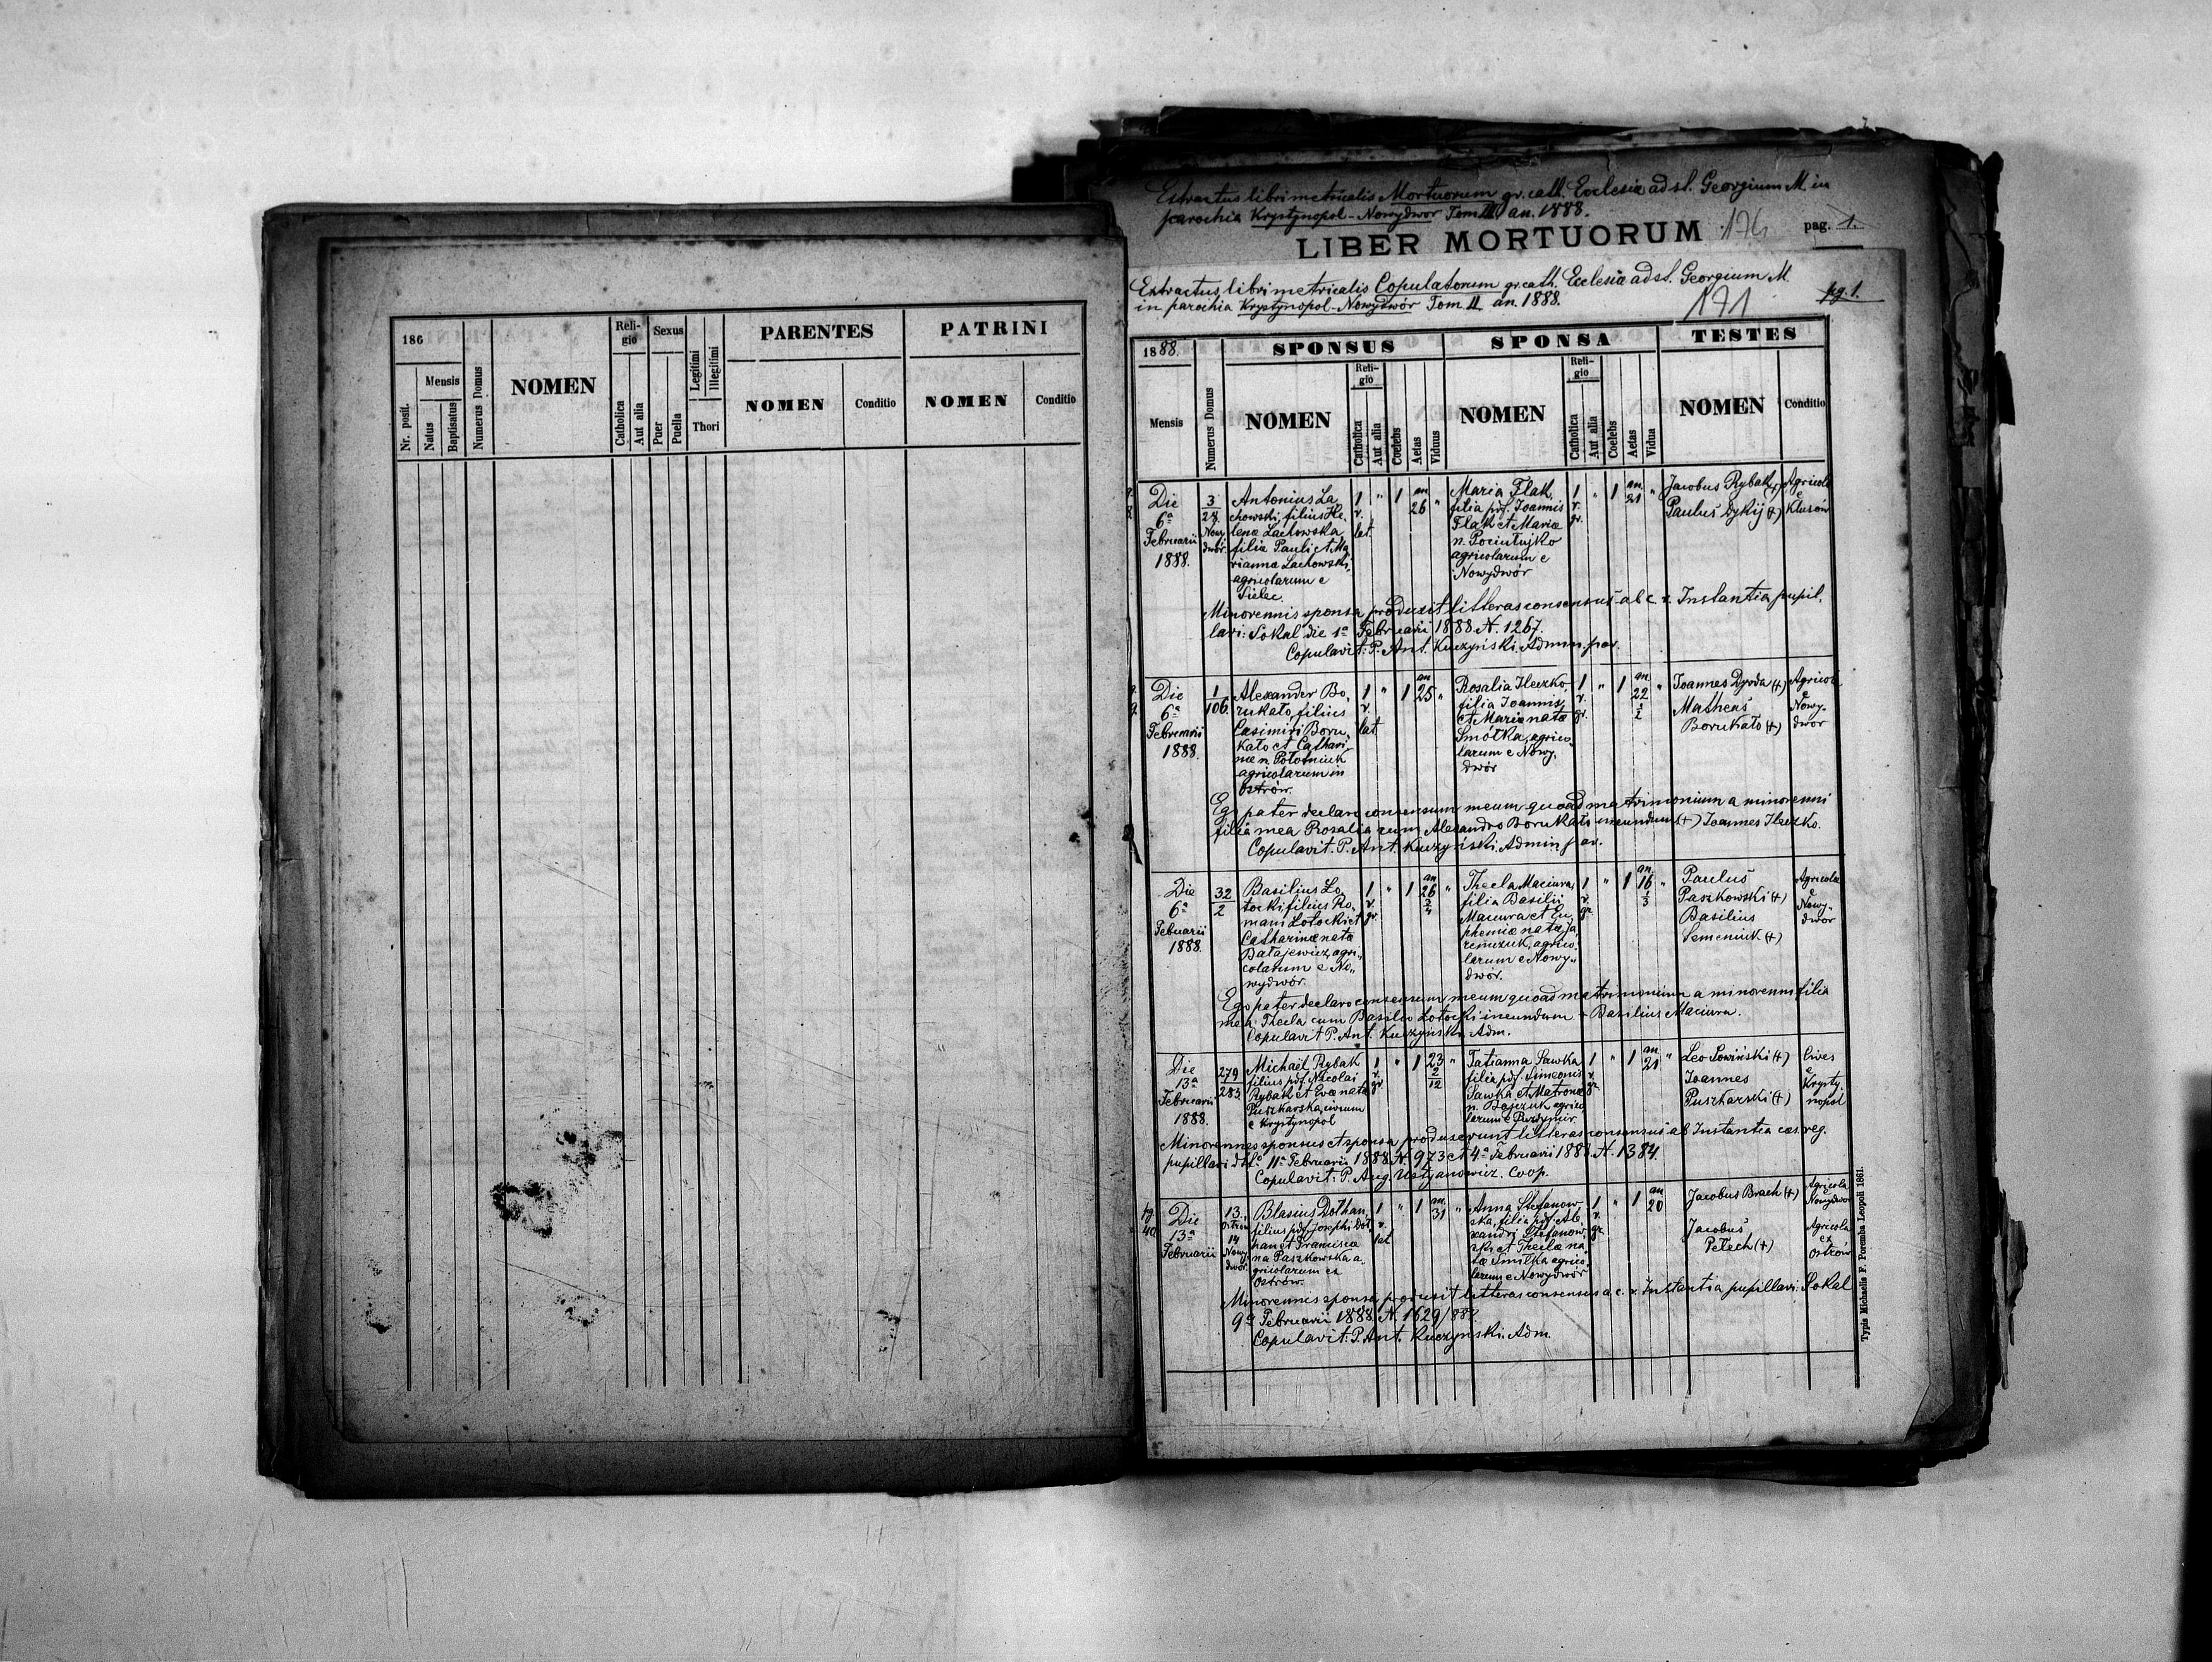 186
Nr. posit.
Mensis
Natus
Baptisatus
Numerus Domus
NOMEN
Reli-
gio
Catholica
Aut alia
Sexus
Puer
Puella
Legitimi
Illegitimi
Thori
PARENTES
NOMEN
Conditio
PATRINI
NOMEN
Conditio
Extractus libri metricalis Mortuorum gr. cath. Ecclesiæ ad st. Georgium M. in
parochia Krystynopol-Nowydwor Tom III an. 1888.
LIBER MORTUORUM
176
pag. 1.
Extractus libri metricalis Copulatorum gr. cath. Ecclesiæ ad st. Georgium M.
in parochia Krystynopol-Nowydwór Tom II an. 1888.
171
pg. 1.
1888.
Mensis
Numerus Domus
SPONSUS
NOMEN
Reli-
gio
Catholica
Aut alia
Coelebs
Aetas
Viduus
SPONSA
NOMEN
Reli-
gio
Catholica
Aut alia
Coelebs
Aetas
Vidua
TESTES
NOMEN
Conditio
Die
6ª
Februarii
1888.
3
27.
Nowy
dwór.
Antonius La
chowski, filius He-
lenæ Lachowska
filia Pauli et Ma
rianna Lachowski,
agricolarum e
Sielec.
1
r.
lat.
"
1
an
26
"
Maria Flak,
filia pdf. Joannis
Flak et Mariæ
n. Pociłujko
agricolarum e
Nowydwór
1
r.
gr.
"
1
an
21
"
Jacobus Rybak (+)
Paulus Dykij (+)
Agricolæ
e
Klusów
Minorennis sponsa produxit litteras consensus ab c. r. Instantia pupil.
lari: Sokal die 1ª Februarii 1888 N. 1267.
Copulavit: P. Ant. Kuczyński. Admin. par.
Die
6ª
Februarii
1888.
1
106.
Alexander Bo-
rukato, filius
Casimiri Boru-
kato et Cathari-
næ n. Połotniuk
agricolarum in
Ostrów.
1
r.
lat
"
1
an
25
"
Rosalia Ileczko,
filia Joannis
et Maria nata
Smółka, agrico-
larum e Nowy-
dwór
1
r.
gr.
"
1
an
22
1
2
"
Joannes Dzioda (+)
Matheus
Borukato (+)
Agricolæ
e
Nowy-
dwor
Ego pater declaro consensum meum quoad matrimonium a minorenni
filia mea Rosalia cum Alexandro Borukato ineundum (+) Joannes Ileczko.
Copulavit. P. Ant. Kuczyński. Admin par.
Die
6ª
Febuarii
1888.
32
2
Basilius Ło-
tocki filius Ro-
mani Łotocki et
Catharinæ nata
Bałajewicz, agri-
colarum e No-
wydwór.
1
r.
gr.
"
1
an
26
3
4
"
Thecla Maciura,
filia Basilii
Maciura et Eu-
phemiæ nata Ja-
remczuk, agrico-
larum e Nowy-
dwór.
1
r.
gr.
"
1
an
16
1
3
"
Paulus
Paszkowski (+)
Basilius
Semeniuk (+)
Agricolæ
e
Nowy-
dwor
Ego pater declaro consensum meum quoad matrimonium a minorenni filia
mea Thecla cum Basilio Łotocki ineundum + Basilius Maciura.
Copulavit P. Ant. Kuczyński. Adm.
Die
13ª
Februarii
1888.
279
283.
Michaël Rybak
filius pdf. Nicolai
Rybak et Evæ nata
Puszkarska, civium
e Krystynopol
1
r.
gr.
"
1
23
2
12
"
Tatianna Sawka
filia pdf. Simeonis
Sawka et Matronæ
n. Bojczuk agrico
larum e Parzymir
1
r.
gr.
"
1
an
21
"
Leo Sowiński (+)
Joannes
Puszkarski (+)
Cives
e
Krysty-
nopol
Minorennes sponsus et sponsa produxerunt litteras consensus ab Instantia cæs. reg.
pupillari dto 11ª Februarii 1888 N. 973 et 4ª Februarii 1888 N. 1384.
Copulavit: P. Aug. Ustyanowicz. Coop.
pg.
40.
Die
13ª
Februarii
13.
Ostrów
14
Nowy
dwór.
Blasius Dothan,
filius pdf. Josephi Dot
han et Francisca
na Paszkowska a-
gricolarum ex
Ostrów.
1
r.
lat
"
1
an.
31
"
Anna Stefanow-
ska, filia pdf. Ale
xandri Stefanow-
ski et Theclæ na
tæ Smiłka agrico-
larum e Nowydwór
1
r.
gr.
"
1
an
20
Jacobus Brach (+)
Jacobus
Petech (+)
Agricola
e
Nowydwor
Agricola
ex
Ostrów
Minorennis sponsa produxit litteras consensus a c. r. Instantia pupillari: Sokal
9ª Februarii 1888. N. 1629/888.
Copulavit: P. Ant. Kuczynski. Adm.
Typis Michaelis F. Poremba Leopoli 1861.